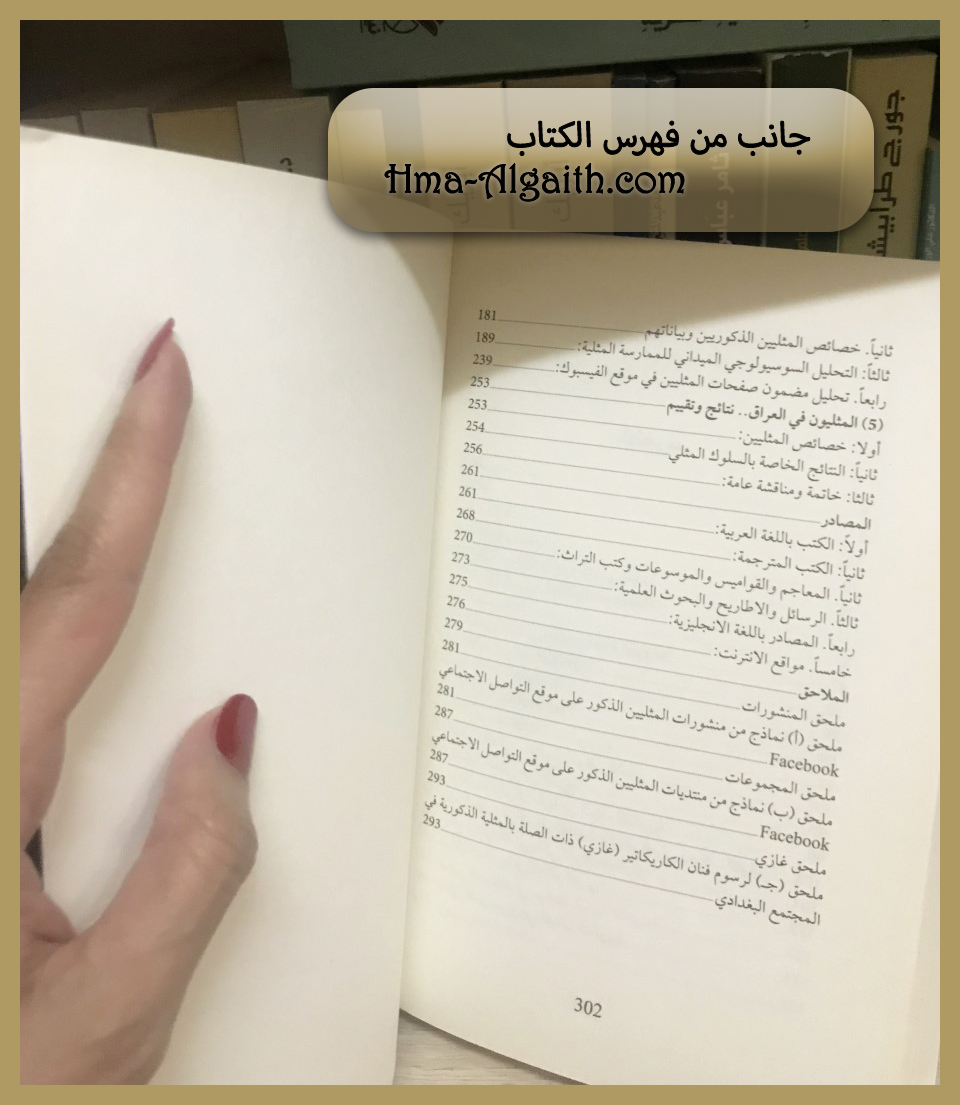 جانب من فهرس الكتاب
Hma-Algaith.com
جورج طرابيش
ثامر عباس
ثانياً. خصائص المثليين الذكوريين وبياناتهم 181
ثالثاً: التحليل السوسيولوجي الميداني للممارسة المثلية: 189
رابعاً. تحليل مضمون صفحات المثليين في موقع الفيسبوك: 239
(5) المثليون في العراق.. نتائج وتقييم 253
أولا: خصائص المثليين: 253
ثانياً: النتائج الخاصة بالسلوك المثلي 254
ثالثا: خاتمة ومناقشة عامة: 256
المصادر 261
أولاً: الكتب باللغة العربية: 261
ثانياً: الكتب المترجمة: 268
ثانياً. المعاجم والقواميس والموسوعات وكتب التراث: 270
ثالثاً. الرسائل والاطاريح والبحوث العلمية: 273
رابعاً. المصادر باللغة الانجليزية: 275
خامساً. مواقع الانترنت: 276
الملاحق 279
ملحق المنشورات 281
ملحق (أ) نماذج من منشورات المثليين الذكور على موقع التواصل الاجتماعي
Facebook 281
ملحق المجموعات 287
ملحق (ب) نماذج من منتديات المثليين الذكور على موقع التواصل الاجتماعي
Facebook 287
ملحق غازي 293
ملحق (جـ) لرسوم فنان الكاريكاتير (غازي) ذات الصلة بالمثلية الذكورية في
المجتمع البغدادي 293
302